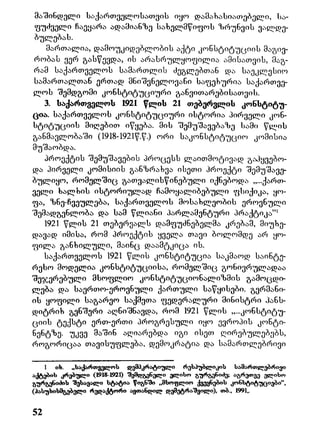 მაშინდელი საქართველოსათვის იყო დამახასიათებელი, სა-
ფუძველი ჩაეყარა ადამიანზე სახელმწიფოს ზრუნვის ვალდე-
ბულებას.
მართალია, დამოუკიდებლობის აქტი კონსტიტუციის მაგივ-
რობას ვერ გასწევდა, ის არასრულყოფილია ამისათვის, მაგ-
რამ საქართველოს სამართლის ძეგლებთან და საეკლესიო
სამართალთან ერთად მნიშვნელოვანი საფეხურია საქართვე-
ლოს შემდგომი კონსტიტუციური განვითარებისათვის.
3. საქართველოს 1921 წლის 21 თებერვლის კონსტიტუ-
ცია. საქართველოს კონსტიტუციური ისტორია პირველი კონ-
სტიტუციის მიღებით იწყება. მის შემუშავებაზე სამი წლის
განმავლობაში (1918-1921წ.წ.) ორი საკონსტიტუციო კომისია
მუშაობდა.
პროექტის შემუშავების პროცესს ლაიტმოტივად გაჰყვებო-
და პირველი კომისიის განზრახვა ისეთი პროექტი შემუშავე-
ბულიყო, რომელშიც გათვალისწინებული იქნებოდა „...ქართ-
ველი ხალხის ისტორიულად ჩამოყალიბებული ფსიქიკა, ყო-
ფა, ზნე-ჩვეულება, საქართველოს მოსახლეობის ეროვნული
შემადგენლობა და სამ წლიანი პარლამენტური პრაქტიკა“¹
1921 წლის 21 თებერვალს დამფუძნებელმა კრებამ, მიუხე-
დავად იმისა, რომ პროექტის ყველა თავი ბოლომდე არ ყო-
ფილა განხილული, მაინც დაამტკიცა ის.
საქართველოს 1921 წლის კონსტიტუცია საკმაოდ საინტე-
რესო მოდელია კონსტიტუციისა, რომელშიც გონივრულადაა
შეჯერებული მსოფლიო კონსტიტუციონალიზმის გამოცდი-
ლება და საერთო-ეროვნული ქართული საწყისები. გერმანი-
ის ყოფილი საგარეო საქმეთა ფედერალური მინისტრი ჰანს-
დიტრიხ გენშერი აღნიშნავდა, რომ 1921 წლის „...კონსტიტუ-
ციის ტექსტი ერთ-ერთი პროგრესული იყო ევროპის კონტი-
ნენტზე. უკვე მაშინ აღიარებდა იგი ისეთ ღირებულებებს,
როგორიცაა თავისუფლება, დემოკრატია და სამართლებრივი
1 იხ. „საქართველოს დემოკრატიული რესპუბლიკის სამართლებრივი
აქტების კრებული (1918-1921) შემდგენელი ელისო გურგენიძე; აგრეთვე ელისო
გურგენიძის შესავალი სტატია წიგნში „მსოფლიო ქვეყნების კონსტიტუციები“,
(პასუხისმგებელი რედაქტორი ავთანდილ დემეტრაშვილი), თბ., 1991.
52